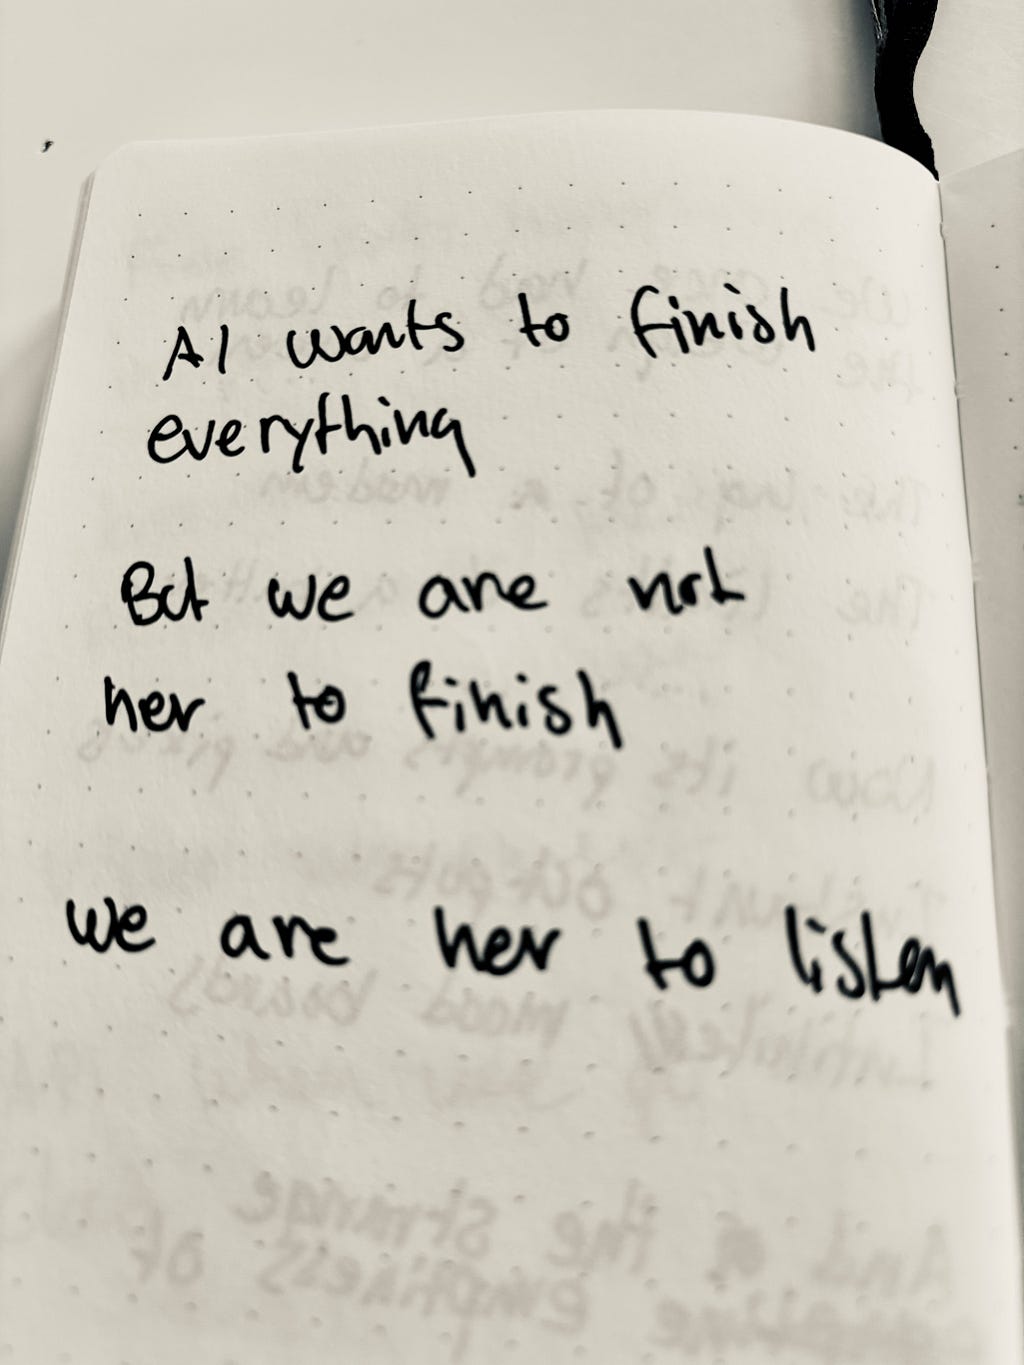 AI wants to finish
everything
But we are not
her to finish
we are her to listen